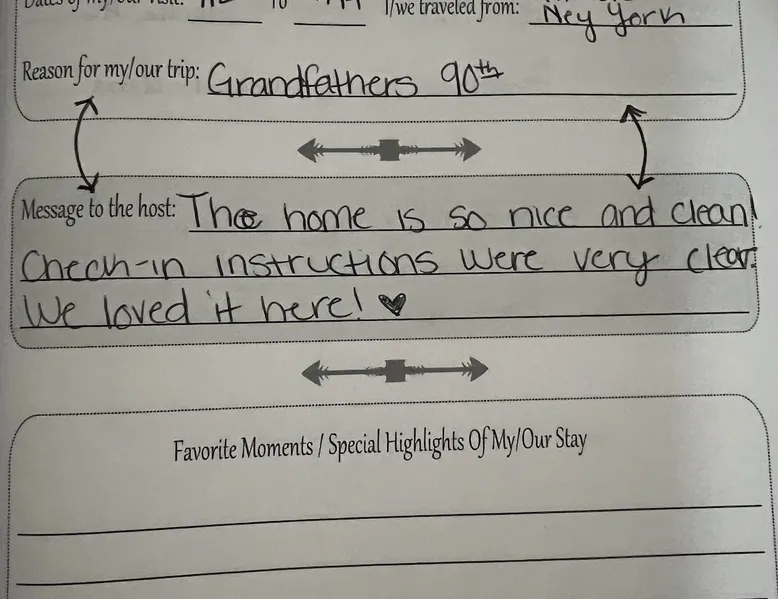 to I/we traveled from: Ney York
Reason for my/our trip: Grandfathers 90th
Message to the host: The home is so nice and clean!
Check-in instructions were very clear.
We loved it here! ♥
Favorite Moments / Special Highlights Of My/Our Stay